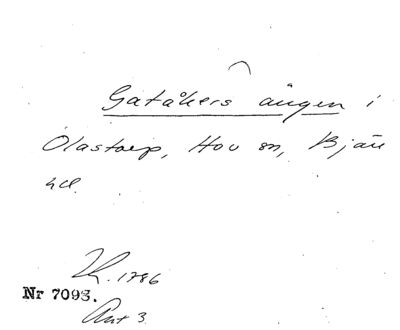 Gatåkers ängen i
Olastorp, Hov sn, Bjäre
hd.
K. 1786
Nr 7093.
Akt 3.